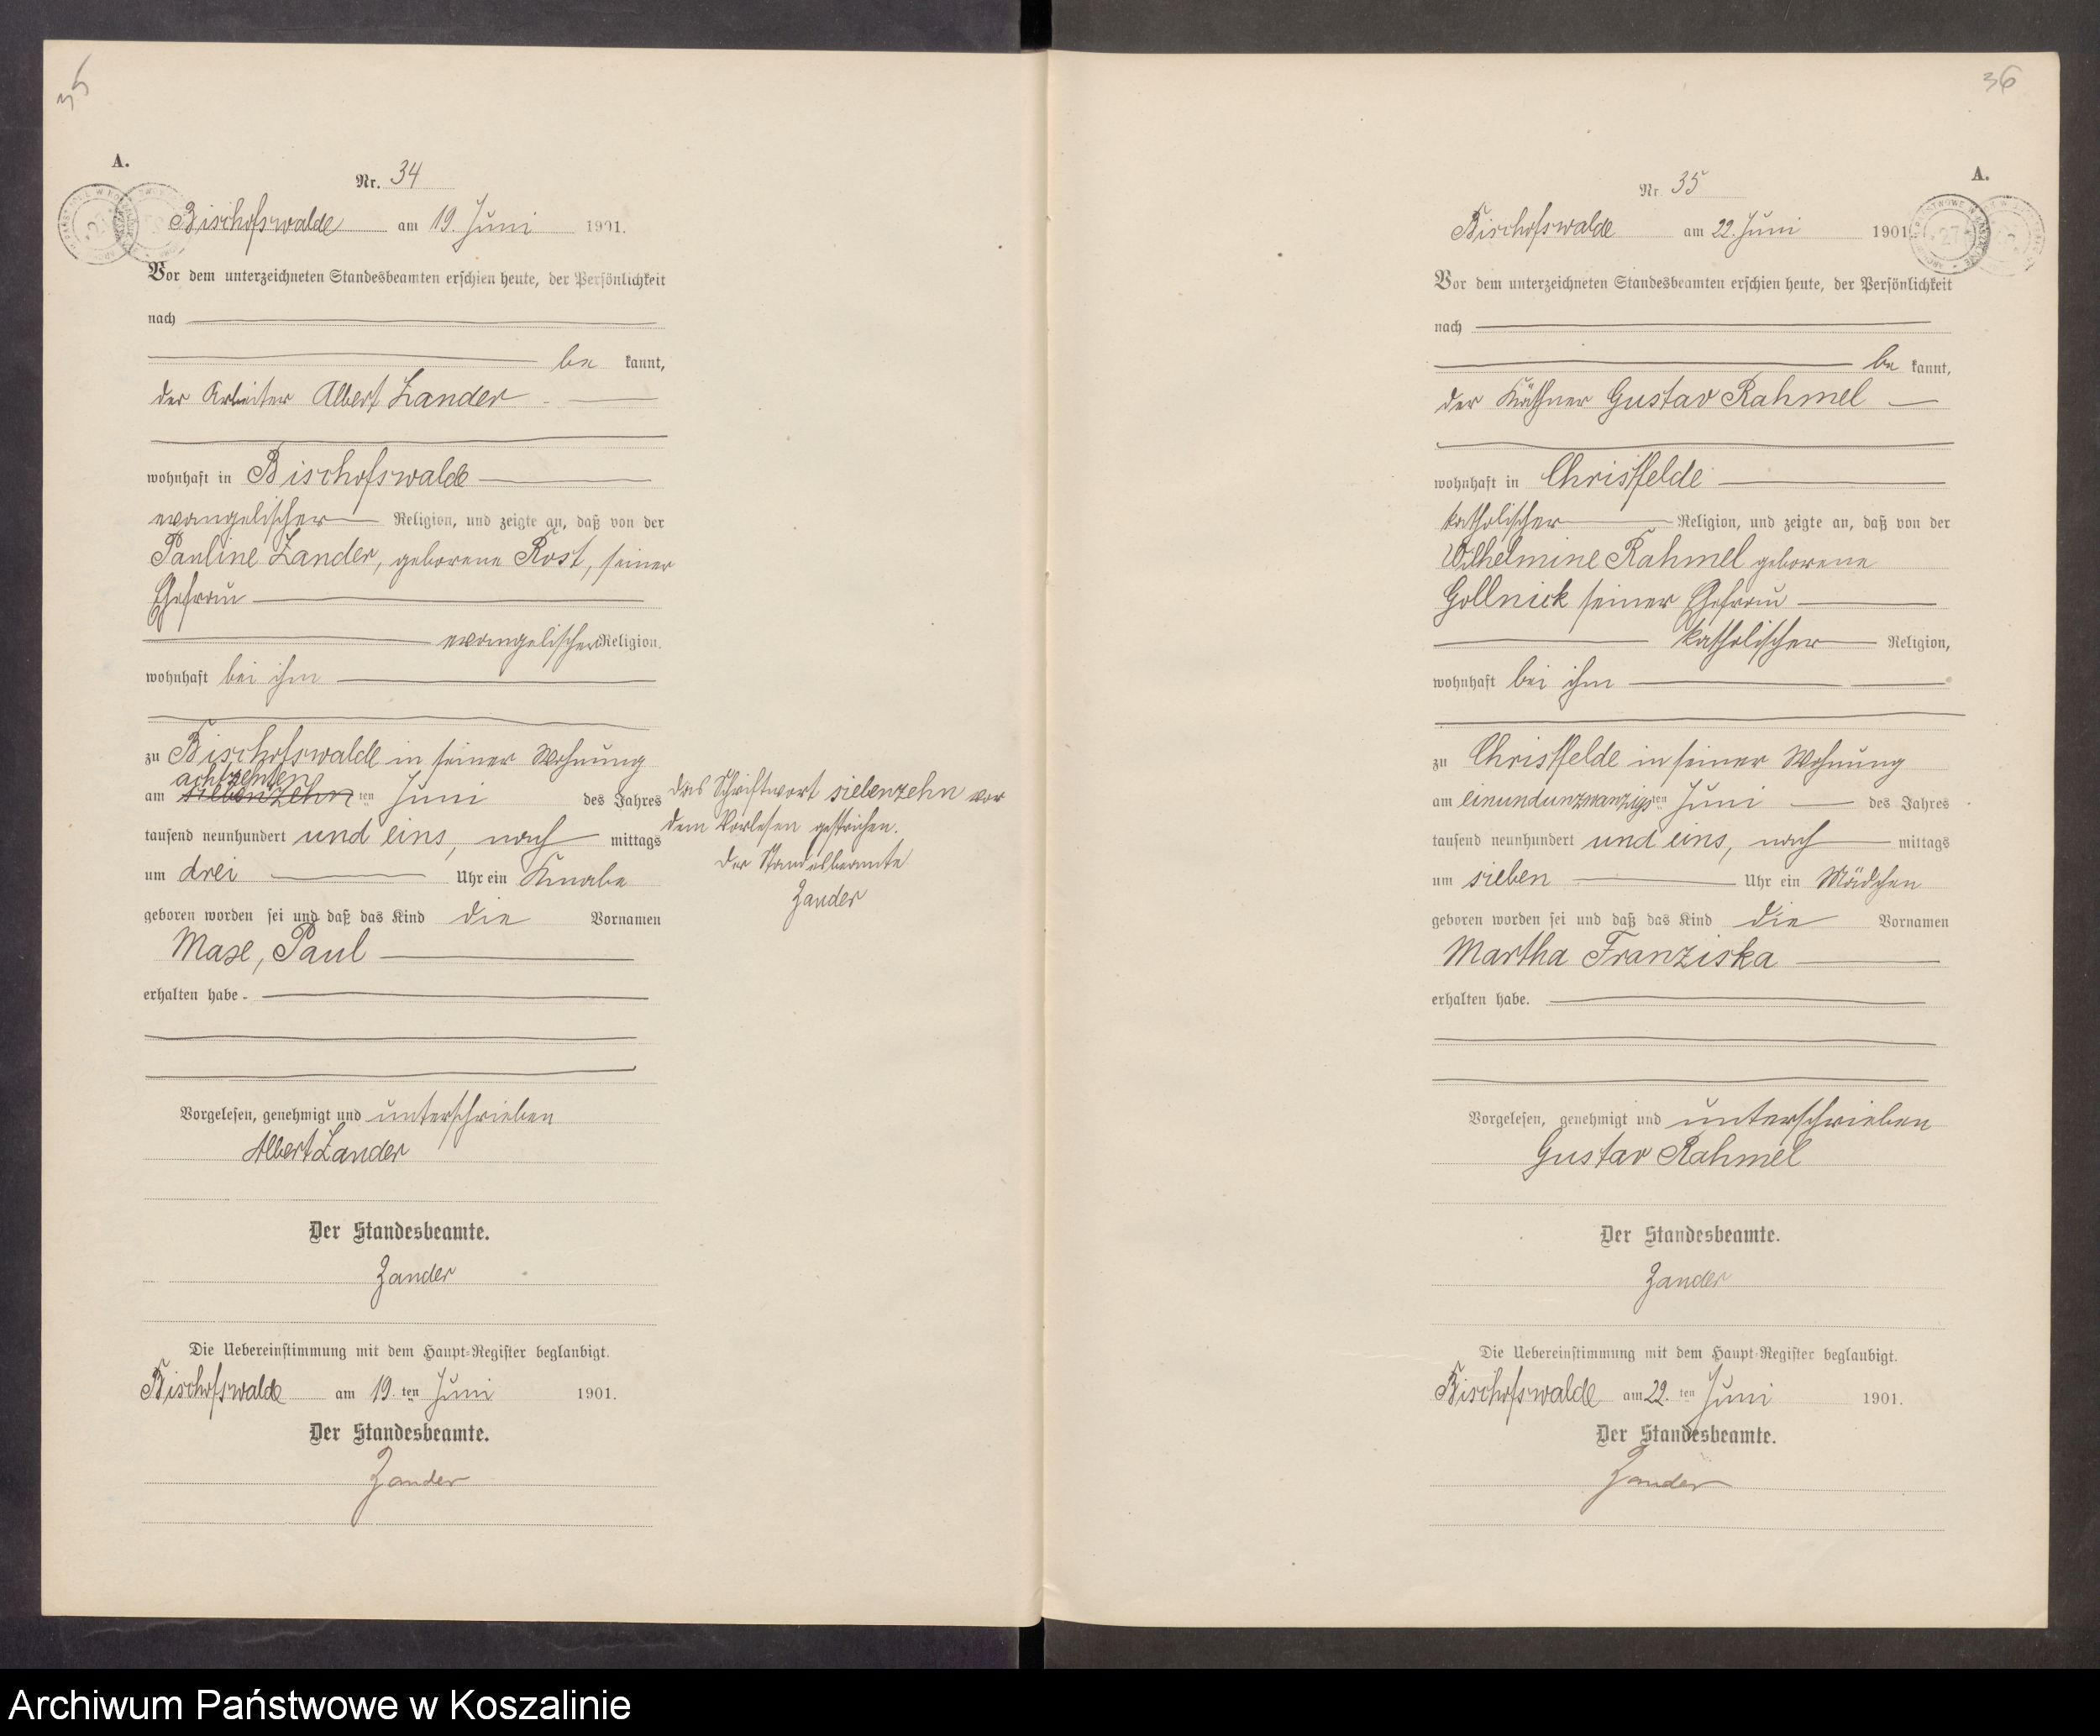 35
A.
Nr. 34
Bischofswalde am 19. Juni 1901.
Vor dem unterzeichneten Standesbeamten erschien heute, der Persönlichkeit
nach
be kannt,
der Arbeiter Albert Zander
wohnhaft in Bischofswalde
evangelischer Religion, und zeigte an, daß von der
Pauline Zander, geborene Rost, seiner
Ehefrau
evangelischer Religion.
wohnhaft bei ihm
zu Bischofswalde in seiner Wohnung
achtzehnten
am siebenzehn ten Juni des Jahres
tausend neunhundert und eins, nach mittags
um drei Uhr ein Knabe
geboren worden sei und daß das Kind die Vornamen
Maxe, Paul
erhalten habe.
das Schriftwort siebenzehn vor
dem Vorlesen gestrichen.
Der Standesbeamte
Zander
Vorgelesen, genehmigt und unterschrieben
Albert Zander
Der Standesbeamte.
Zander
Die Uebereinstimmung mit dem Haupt-Register beglaubigt.
Bischofswalde am 19. ten Juni 1901.
Der Standesbeamte.
Zander
36
A.
Nr. 35
Bischofswalde am 22. Juni 1901.
27
Vor dem unterzeichneten Standesbeamten erschien heute, der Persönlichkeit
nach
be kannt,
der Käthner Gustav Rahmel
wohnhaft in Christfelde
katholischer Religion, und zeigte an, daß von der
Wilhelmine Rahmel geborene
Gollnick seiner Ehefrau
katholischer Religion,
wohnhaft bei ihm
zu Christfelde in seiner Wohnung
am einundzwanzigs ten Juni des Jahres
tausend neunhundert und eins, nach mittags
um sieben Uhr ein Mädchen
geboren worden sei und daß das Kind die Vornamen
Martha Franziska
erhalten habe.
Vorgelesen, genehmigt und unterschrieben
Gustav Rahmel
Der Standesbeamte.
Zander
Die Uebereinstimmung mit dem Haupt-Register beglaubigt.
Bischofswalde am 22. ten Juni 1901.
Der Standesbeamte.
Zander
Archiwum Państwowe w Koszalinie